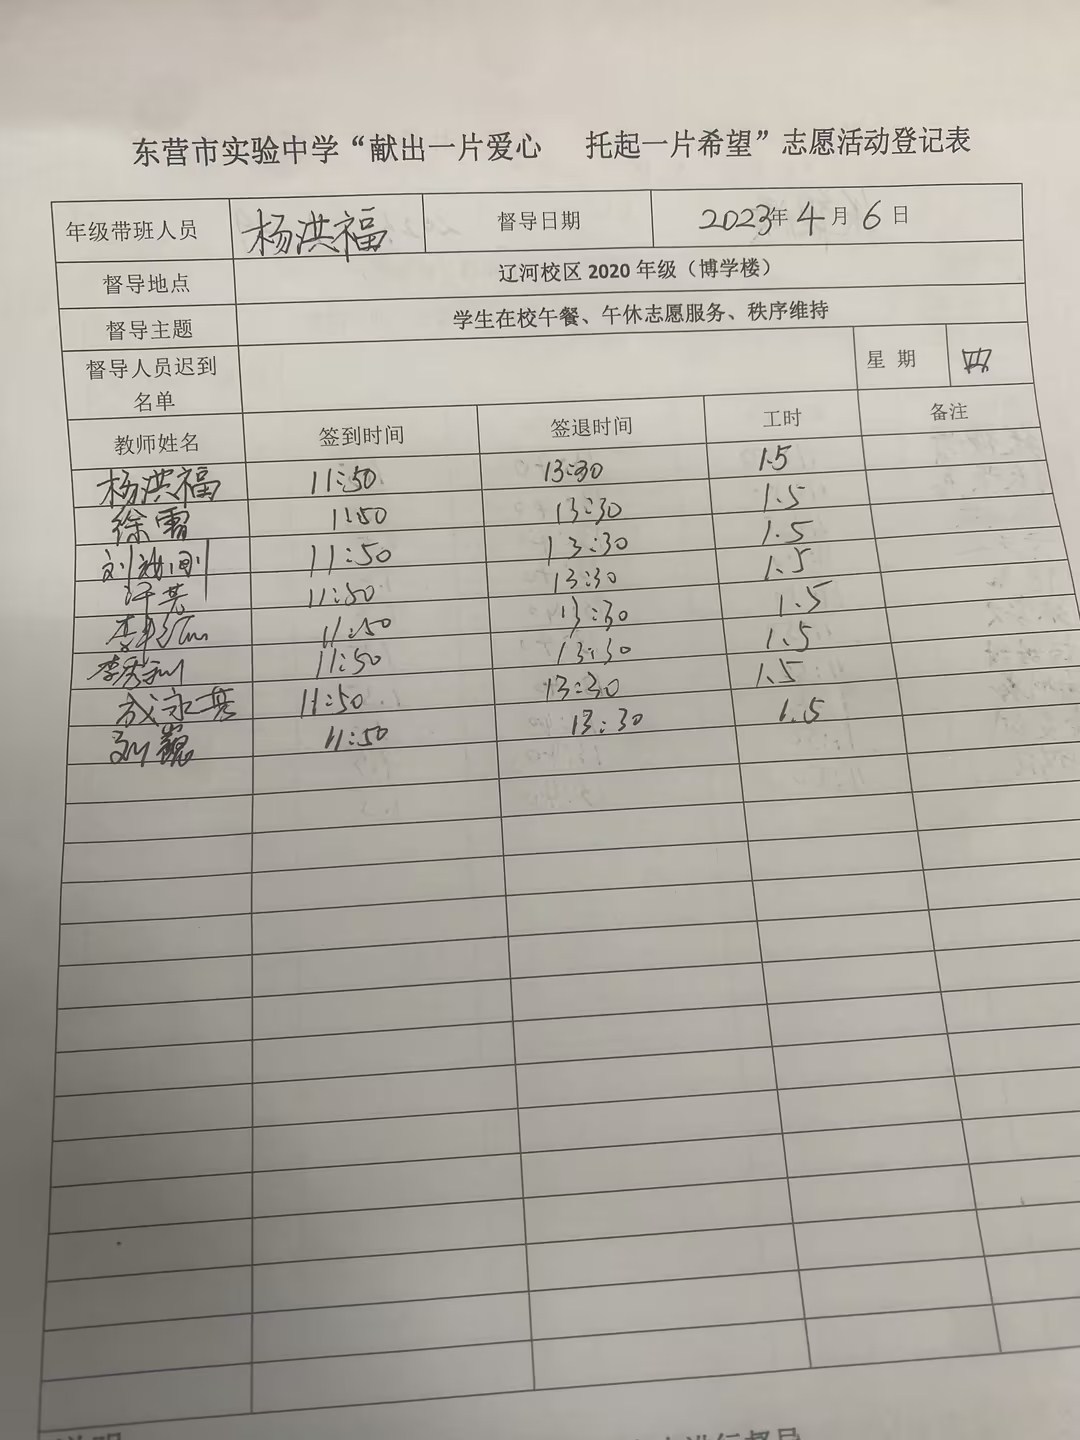 东营市实验中学“献出一片爱心 托起一片希望”志愿活动登记表
年级带班人员 杨洪福 督导日期 2023年4月6日
督导地点 辽河校区2020年级（博学楼）
督导主题 学生在校午餐、午休志愿服务、秩序维持
督导人员迟到
名单 星 期 四
教师姓名 签到时间 签退时间 工时 备注
杨洪福 11:50 13:30 1.5
徐雷 11:50 13:30 1.5
刘 刚 11:50 13:30 1.5
11:50 13:30 1.5
李 11:50 13:30 1.5
李秀利 11:50 13:30 1.5
成永 11:50 13:30 1.5
刘巍 11:50 13:30 1.5
进行督导